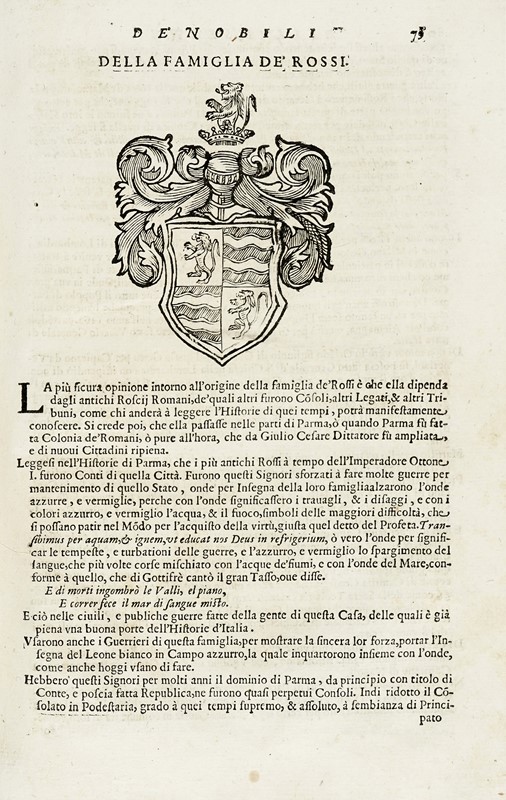 DE' NOBILI
DELLA FAMIGLIA DE' ROSSI.
LA più ſicura opinione intorno all'origine della famiglia de'Roſſi è che ella dipenda
dagli antichi Roſcij Romani, de'quali altri furono Cõſoli, altri Legati, & altri Tri-
buni, come chi anderà à leggere l'Hiſtorie di quei tempi, potrà manifeſtamente
conoſcere. Si crede poi, che ella paſſaſſe nelle parti di Parma, ò quando Parma fù fat-
ta Colonia de'Romani, ò pure all'hora, che da Giulio Ceſare Dittatore fù ampliata,
e di nuoui Cittadini ripiena.
Leggeſi nell'Hiſtorie di Parma, che i più antichi Roſſi à tempo dell'Imperadore Ottone
I. furono Conti di quella Città. Furono queſti Signori sforzati à fare molte guerre per
mantenimento di quello Stato, onde per Inſegna della loro famiglia alzarono l'onde
azzurre, e vermiglie, perche con l'onde ſignificaſſero i trauagli, & i diſaggi, e con i
colori azzurro, e vermiglio l'acqua, & il fuoco, ſimboli delle maggiori difficoltà, che
ſi poſſano patir nel Mõdo per l'acquiſto della virtù, giuſta quel detto del Profeta. Tran-
ſibimus per aquam, & ignem, vt educat nos Deus in refrigerium, ò vero l'onde per ſignifi-
car le tempeſte, e turbationi delle guerre, e l'azzurro, e vermiglio lo ſpargimento del
ſangue, che più volte corſe miſchiato con l'acque de'fiumi, e con l'onde del Mare, con-
forme à quello, che di Gottifrè cantò il gran Taſſo, oue diſſe.
E di morti ingombrò le Valli, el piano,
E correr fece il mar di ſangue miſto.
E ciò nelle ciuili, e publiche guerre fatte della gente di queſta Caſa, delle quali è già
piena vna buona porte dell'Hiſtorie d'Italia.
Vſarono anche i Guerrieri di queſta famiglia, per moſtrare la ſincera lor forza, portar l'In-
ſegna del Leone bianco in Campo azzurro, la quale inquartorono inſieme con l'onde,
come anche hoggi vſano di fare.
Hebbero queſti Signori per molti anni il dominio di Parma, da principio con titolo di
Conte, e poſcia fatta Republica, ne furono quaſi perpetui Conſoli. Indi ridotto il Cõ-
ſolato in Podeſtaria, grado à quei tempi ſupremo, & aſſoluto, à ſembianza di Princi-
pato